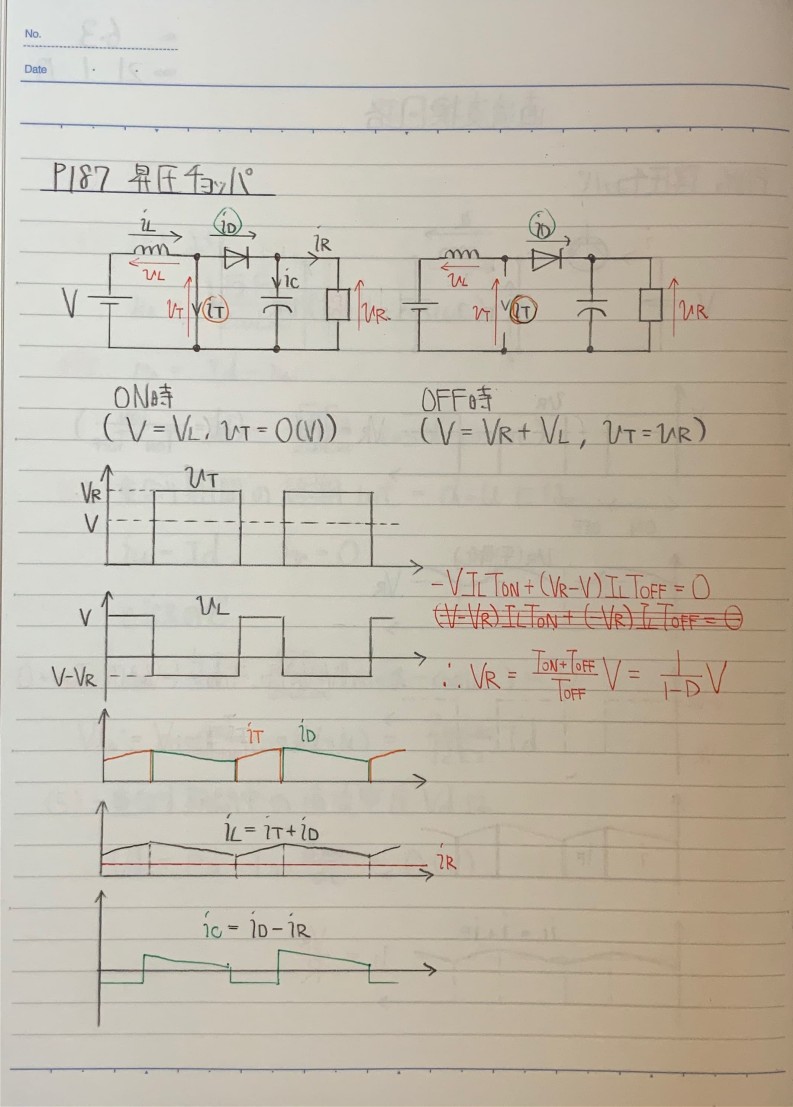 No.
Date
P187 昇圧チョッパ
iL iD iR iD
vL iC vL
V vT iT vR vT iT vR
ON時 OFF時
(V=VL, vT=0(V)) (V=VR+VL, vT=vR)
vT
VR
V
-VILTON+(VR-V)ILTOFF=0
vL
V
(V-VR)ILTON+(-VR)ILTOFF=0
V-VR
∴VR= TON+TOFF/TOFF V= 1/1-D V
iT iD
iL=iT+iD
iR
iC=iD-iR